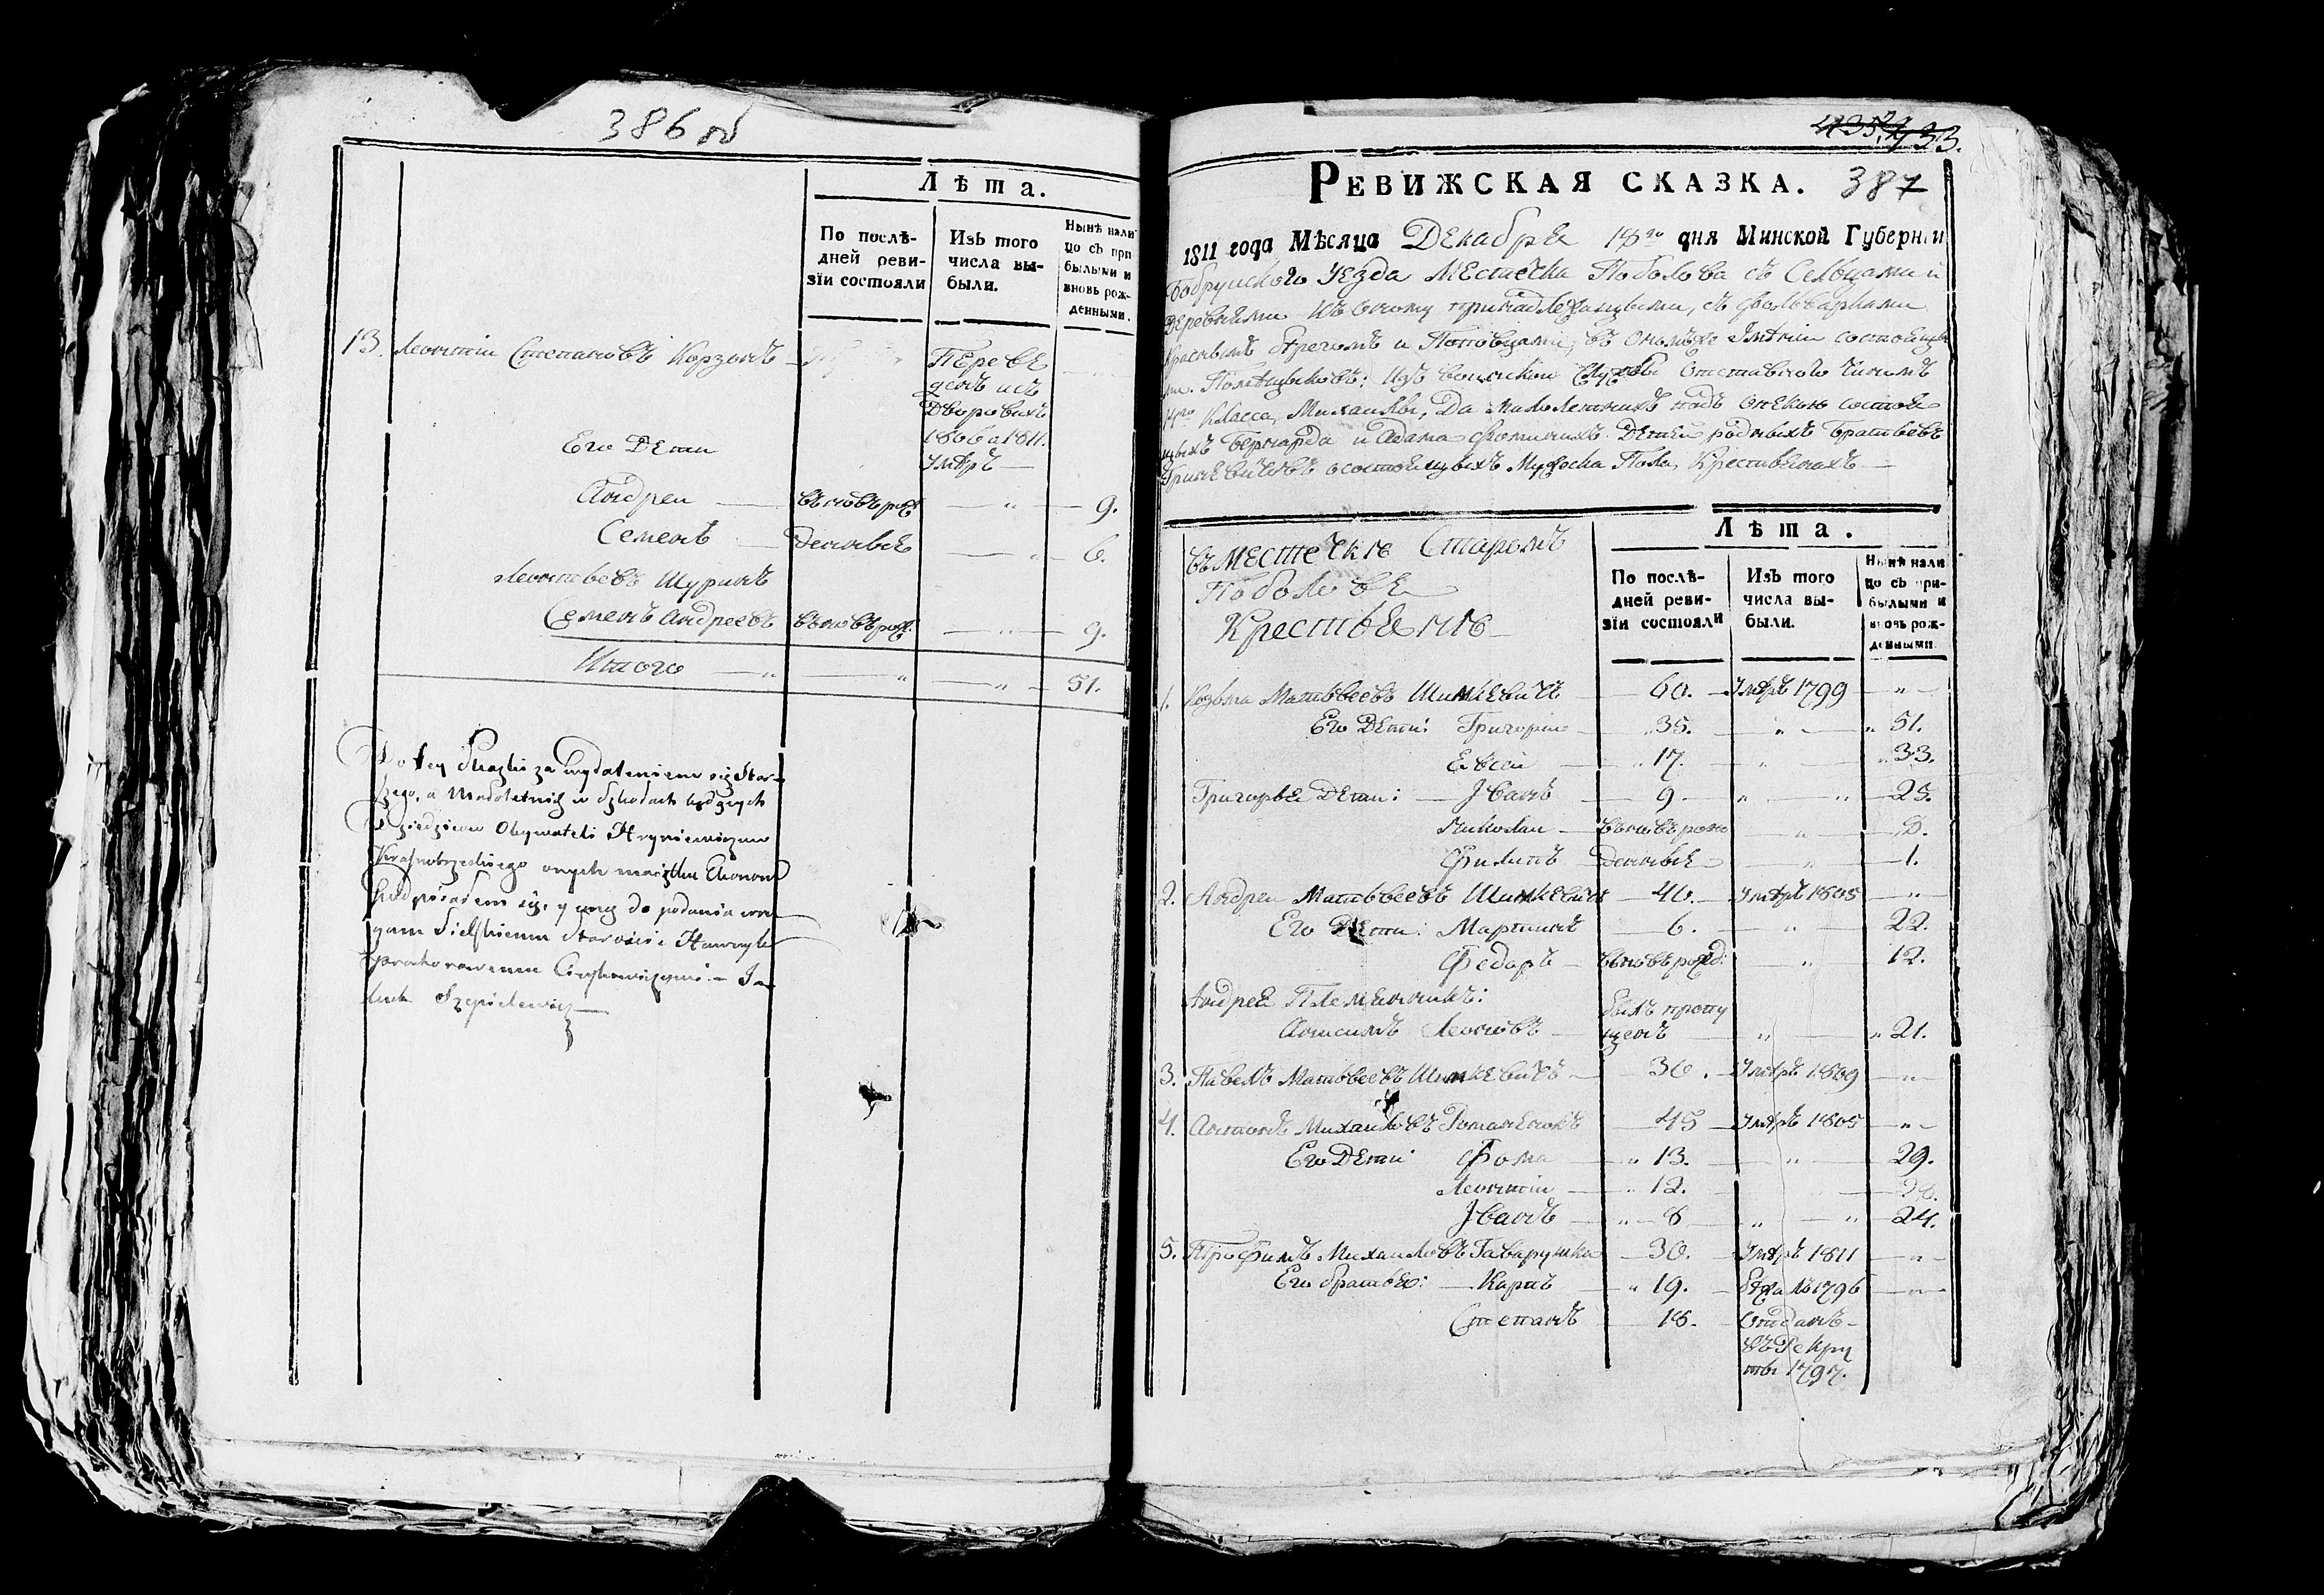 386 об
Лѣта.
По послѣ-
дней реви-
зіи состояли
Изъ того
числа вы-
были.
Нынѣ нали
цо съ при
былыми и
вновь рож-
денными.
13. Леонтіи Степановъ Корзунъ
Переве
денъ изъ
Дворовыхъ
1806 а 1811.
Умѣръ
Его Дети
Андреи вновърож — „ — 9.
Семенъ денные — „ 6.
Леонтьевъ Шуринъ
Семенъ Андреевъ вновърож. — „ — 9.
Итого „ „ — „ — 51.
Do tey Skazki za wydaleniem się Star-
szego, a Małoletnich w Szkołach będących
Dziedziców Obywateli Hryniewiczow
onych maiątku Ekonom
podpisałem się, y oną do podania
Sielskiemu Staroście
433.
Ревижская сказка. 387
1811 года Мѣсяца Декабря 18го дня Минской Губерніи
Бобруйского Уезда Местечка Поболова съ Сельцами и
Деревнями къ оному принадлежащими, съ фольварками
Краснымъ Брегомъ и Поповцами, въ ономъже Имѣніи состоящих
Помѣщиковъ: Изъ воинской Службы Отставного Чиномъ
14го Класса, Михаилы, Да малолетнихъ подъ опекою состоя
щихъ Бернарда и Адама Фоминыхъ Детей родныхъ Братьевъ
Гриневичевъ о состоящихъ Мужеска Пола, Крестьянахъ
въ Местечке Старомъ
Поболове
Крестьяне
Лѣта.
По послѣ-
дней реви-
зіи состояли
Изъ того
числа вы-
были.
Нынѣ нали
цо съ при-
былыми и
вновь рож-
денными.
1. Козьма Матвеевъ Шинкевичъ — 60. — Умѣръ 1799 — „ —
Его Дети: Григории — „ 35. — „ — „ 51.
Евсеи — „ 17. — „ — „ 33.
Григорья Дети: — Иванъ — 9 — „ — „ — 25.
Николаи — вновърож — „ —
Филипъ — денные — „ — 1.
2. Андреи Матвеевъ Шинкевичъ — 40. — Умѣръ 1805 — „ —
Его Дети: Мартинъ — 6. — „ — 22.
Федоръ — вновърожд: — „ — 12.
Андрея Племянникъ: былъ пропу
Анисимъ Леоновъ — щенъ — „ — „ 21.
3. Павелъ Матвеевъ Шинкевичъ — 36. — Умѣръ 1809 — „ —
4. Антонъ Михаиловъ Романенокъ — 45 — Умѣръ 1805 — „ —
Его Дети: Фома — „ 13. — „ — 29.
Леонтіи — „ 12. — 28.
Иванъ — „ 8 — „ — „ 24.
5. Трофимъ Михаиловъ Гаварушка — 30. — Умѣръ 1811 — „ —
Его братья: — Карпъ — „ 19. — бежалъ 1796 — „ —
Степанъ — 18. — Отданъ
въ Рекру
ты 1797.